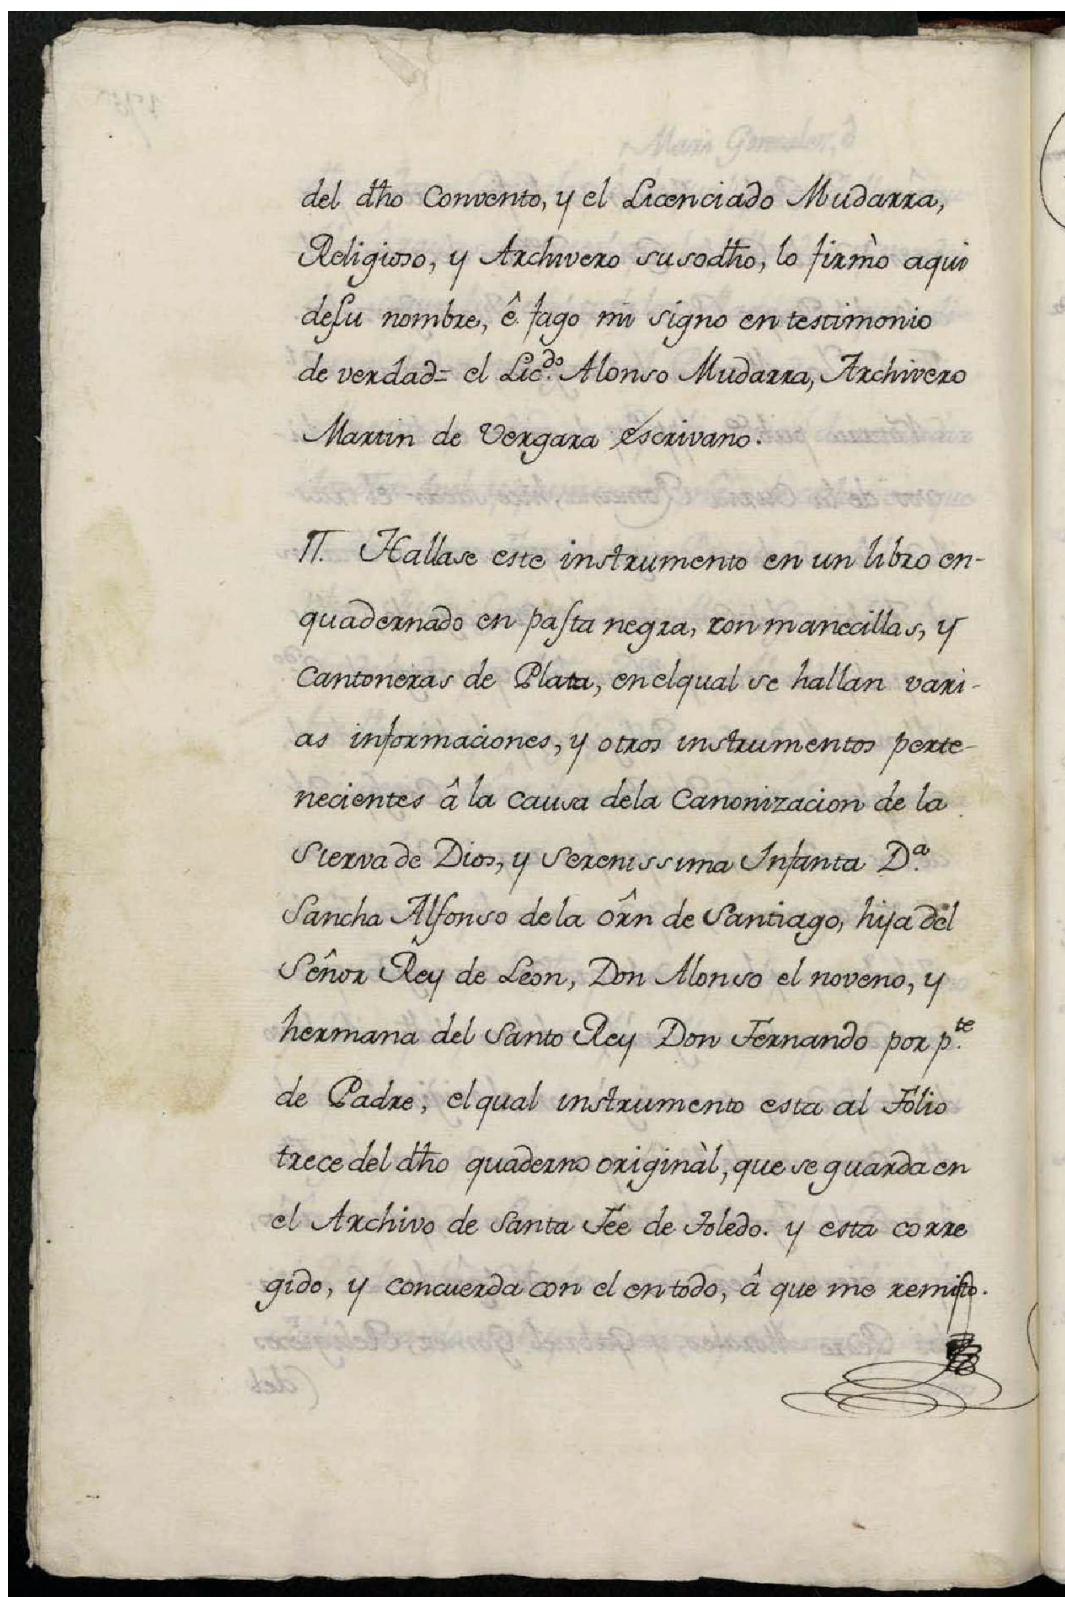 del dho Convento, y el Licenciado Mudarra,
Religioso, y Archivero susodho, lo firmò aqui
desu nombre, ê fago mi signo en testimonio
de verdad= el Lic.do Alonso Mudarra, Archivero
Martin de Vergara escrivano.
II. Hallase este instrumento en un libro en-
quadernado en pasta negra, con manecillas, y
Cantoneras de Plata, en elqual se hallan vari-
as informaciones, y otros instrumentos perte-
necientes â la causa dela Canonizacion de la
Sierva de Dios, y Serenissima Infanta D.a
Sancha Alfonso de la orn̂ de Santiago, hija del
Señor Rey de Leon, Don Alonso el noveno, y
hermana del Santo Rey Don Fernando por p.te
de Padre; elqual instrumento esta al Folio
trece del dho quaderno originàl, que se guarda en
el Archivo de Santa Fee de Toledo. y està corre
gido, y concuerda con el en todo, â que me remito.